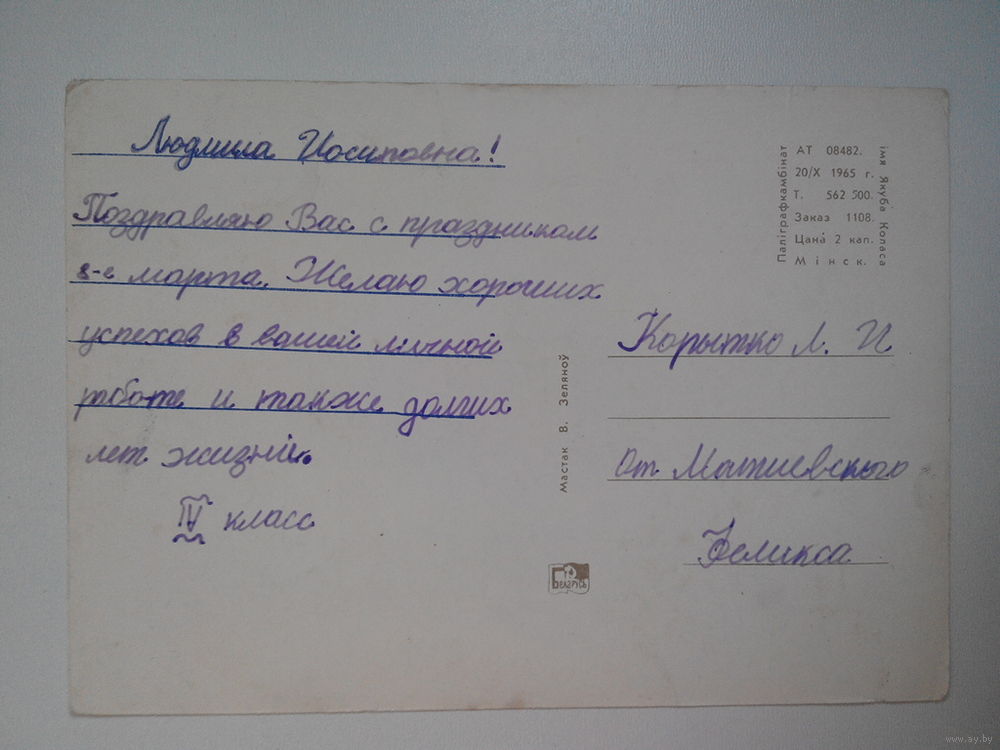 Людмила Иосиповна!
Поздравляю Вас с праздником
8-е марта. Желаю хороших
успехов в вашей личной
работе и также долгих
лет жизни.
IV класс
Мастак В. Зеляноў
Беларусь
Паліграфкамбінат
АТ 08482.
20/X 1965 г.
Т. 562 500.
Заказ 1108.
Цана 2 кап.
Мінск.
імя Якуба Коласа
Корытко Л. И
От Матиевского
Феликса
www.ay.by